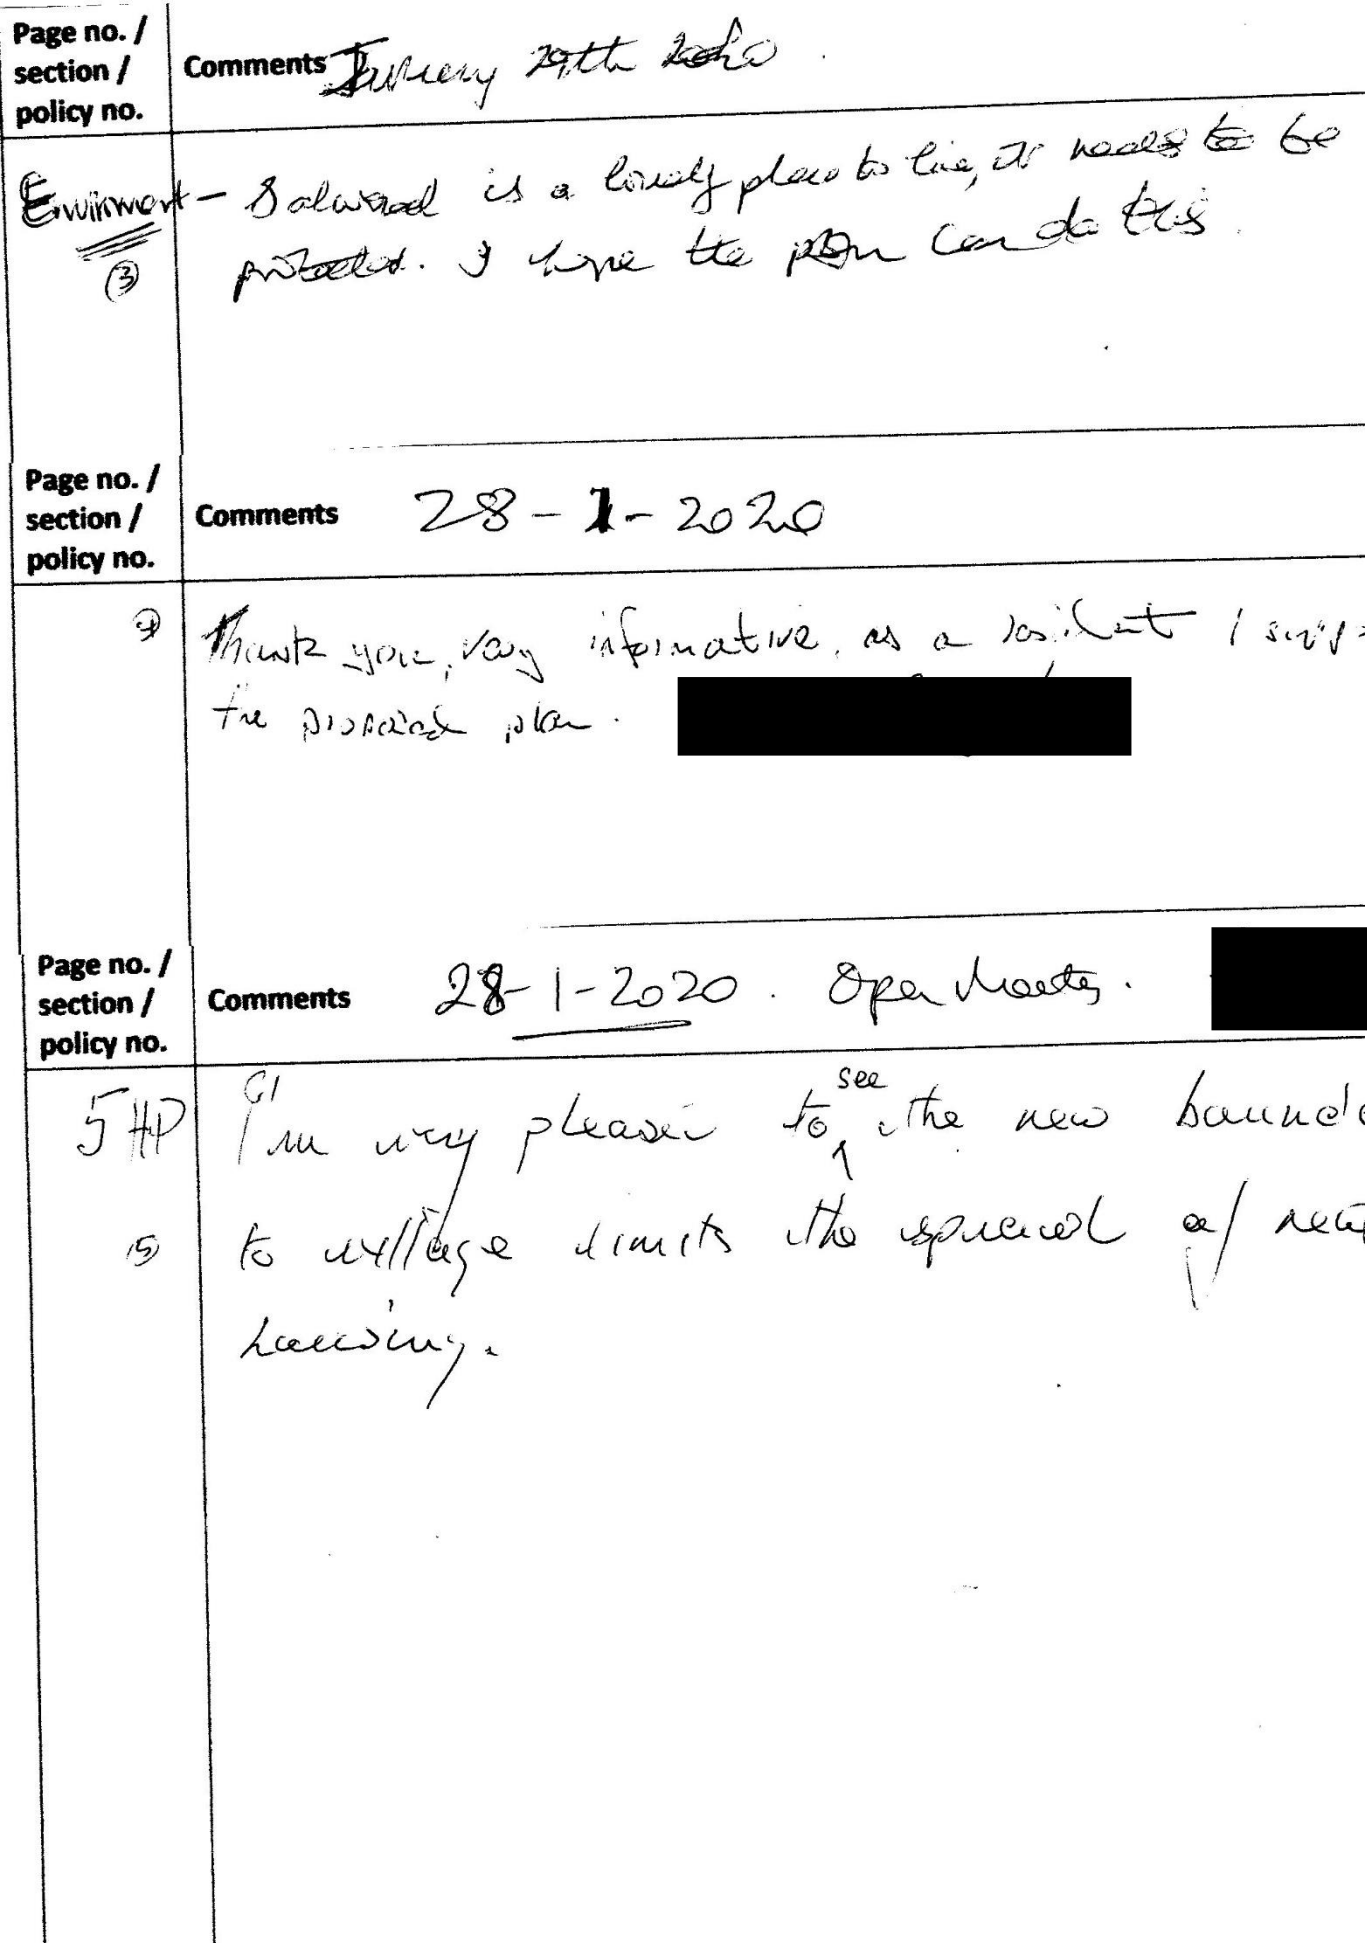 Page no. /
section /
policy no.
Comments January 29th 2020
Envirment - Salwood is a lovely place to live, it needs to be
③ protected. I hope the plan can do this.
Page no. /
section /
policy no.
Comments 28-1-2020
Thank you, very informative, as a resident I supp
the proposed plan.
Page no. /
section /
policy no.
Comments 28-1-2020. Open Meeting.
5 HP I'm very pleased to see the new bounda
⑤ to village limits the spread of new
housing.